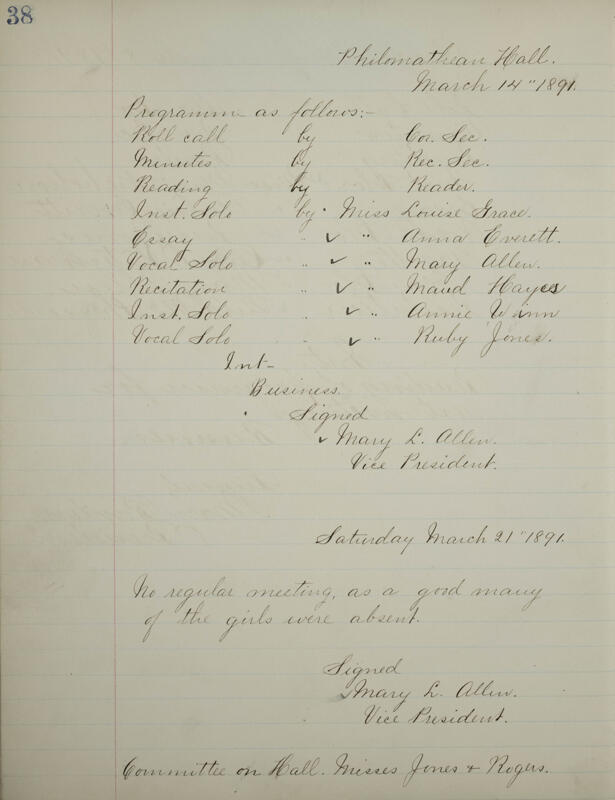 38
Philomathean Hall.
March 14" 1891.
Programm as follows:-
Roll call by Co. Sec.
Minutes by Rec. Sec.
Reading by Reader.
Inst. Solo by Miss Louise Grace.
Essay " ✓ " Anna Everett.
Vocal Solo " ✓ " Mary Allen.
Recitation " ✓ " Maud Hayes
Inst. Solo " ✓ " Annie Winn
Vocal Solo " ✓ " Ruby Jones.
Int-
Business.
Signed
✓ Mary L. Allen.
Vice President.
Saturday March 21" 1891.
No regular meeting, as a good many
of the girls were absent.
Signed
✓ Mary L. Allen.
Vice President.
Committee on Hall. Misses Jones & Rogers.